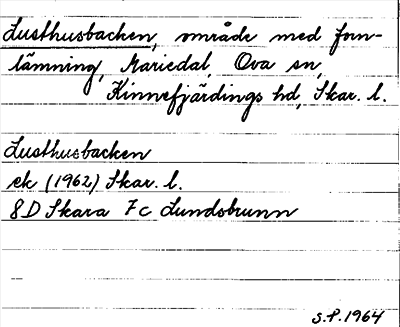 Lusthusbacken, område med forn-
lämning, Mariedal, Ova sn,
Kinnefjärdings hd, Skar. l.
Lusthusbacken
ek (1962) Skar. l.
8D Skara 7c Lundsbrunn
S.P. 1964